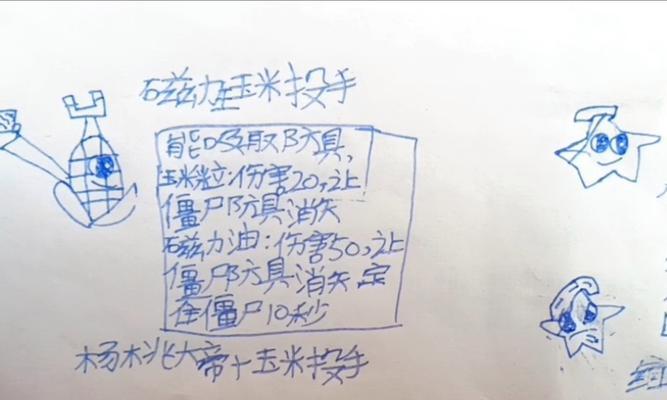 磁力玉米投手
能吸取防具,
玉米粒:伤害20,让
僵尸防具消失
磁力油:伤害50,让
僵尸防具消失,定
在僵尸10秒
杨桃大帝+玉米投手